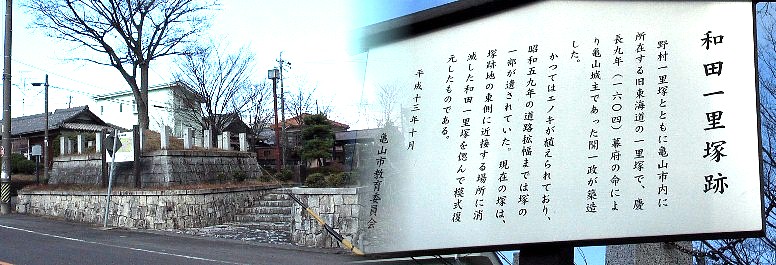 和田一里塚跡
野村一里塚とともに亀山市内に
所在する旧東海道の一里塚で、慶
長九年(一六〇四)幕府の命によ
り亀山城主であった関一政が築造
した。
かつてはエノキが植えられており、
昭和五九年の道路拡幅までは塚の
一部が遺されていた。現在の塚は、
塚跡地の東側に近接する場所に消
滅した和田一里塚を偲んで模式復
元したものである。
平成十三年十月
亀山市教育委員会